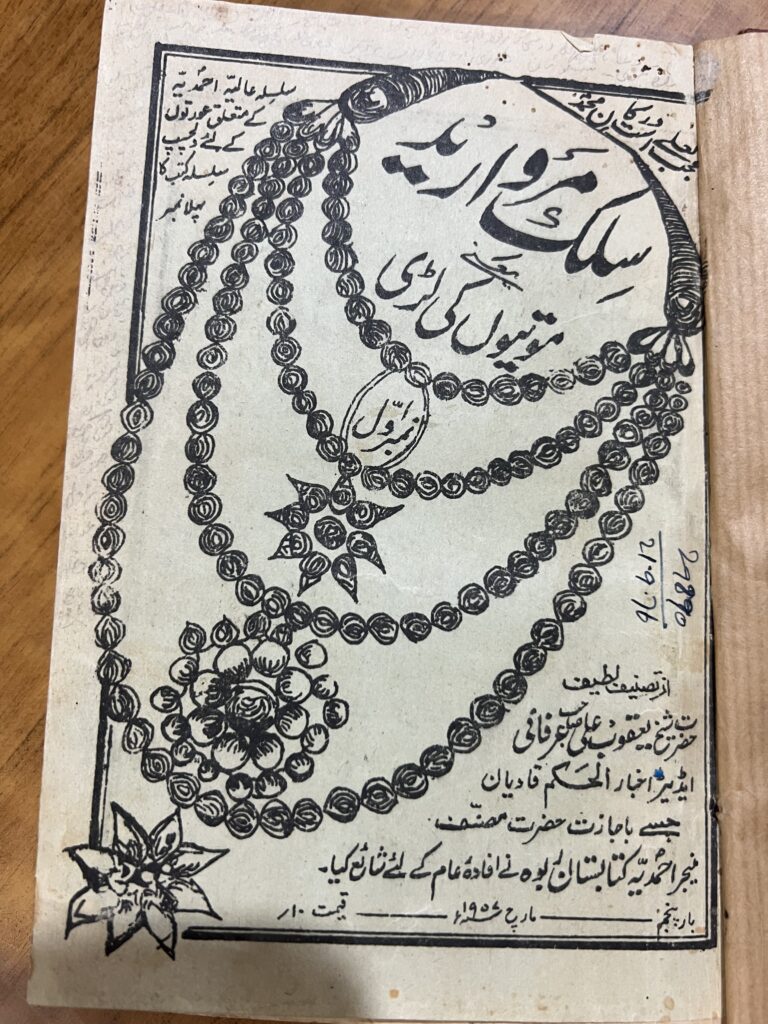 سلسلہ عالیہ احمدیہ
کے متعلق عورتوں
کے لئے دلچسپ
سلسلہ کتب کا
پہلا نمبر
سلک مروارید
یعنے
موتیوں کی لڑی
نمبر اوّل
27890
21.9.76
از تصنیف لطیف
حضرت شیخ یعقوب علی صاحب عرفانی
ایڈیٹر اخبار الحکم قادیان
جسے باجازت حضرت مصنّف
منیجر احمدیہ کتابستان ربوہ نے افادۂ عام کے لئے شائع کیا۔
بار پنجم: مارچ ۱۹۵۷ء قیمت ۱۰/